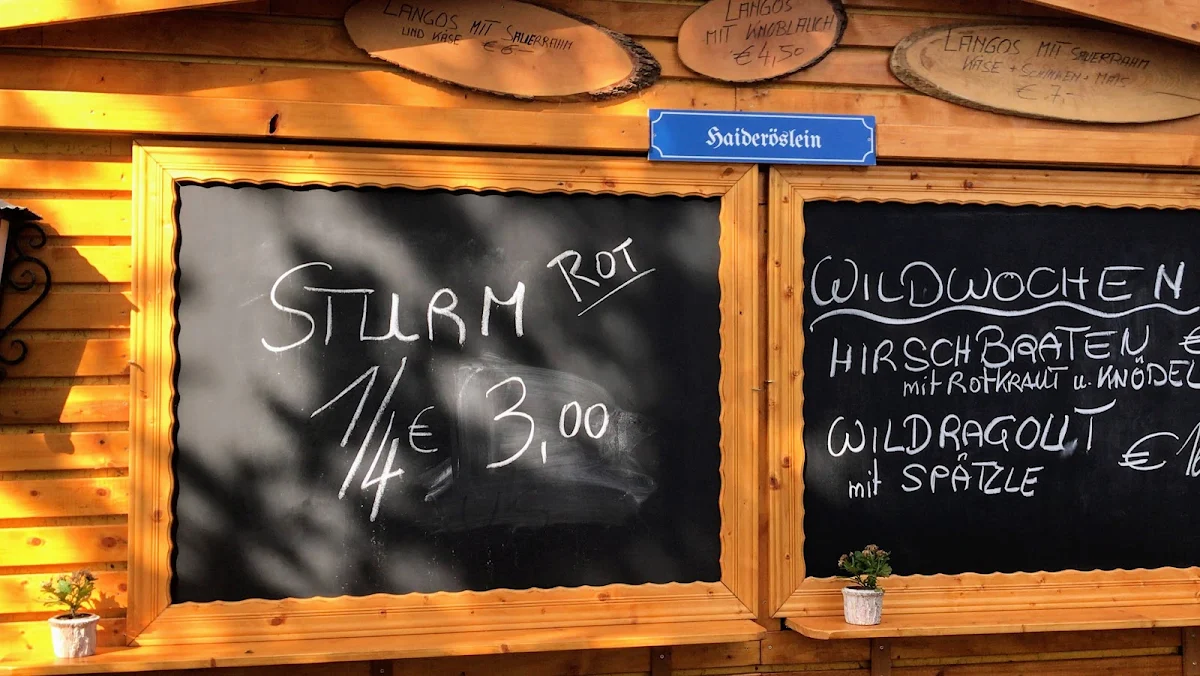 LANGOS MIT SAUERRAHM
UND KÄSE € 6-
LANGOS
MIT KNOBLAUCH
€ 4,50
LANGOS MIT SAUERRAHM
KÄSE + SCHINKEN + MAIS
€ 7.-
Haideröslein
STURM ROT
1/4 € 3,00
WILDWOCHEN
HIRSCHBRATEN €
mit ROTKRAUT u. KNÖDEL
WILDRAGOUT
mit SPÄTZLE €